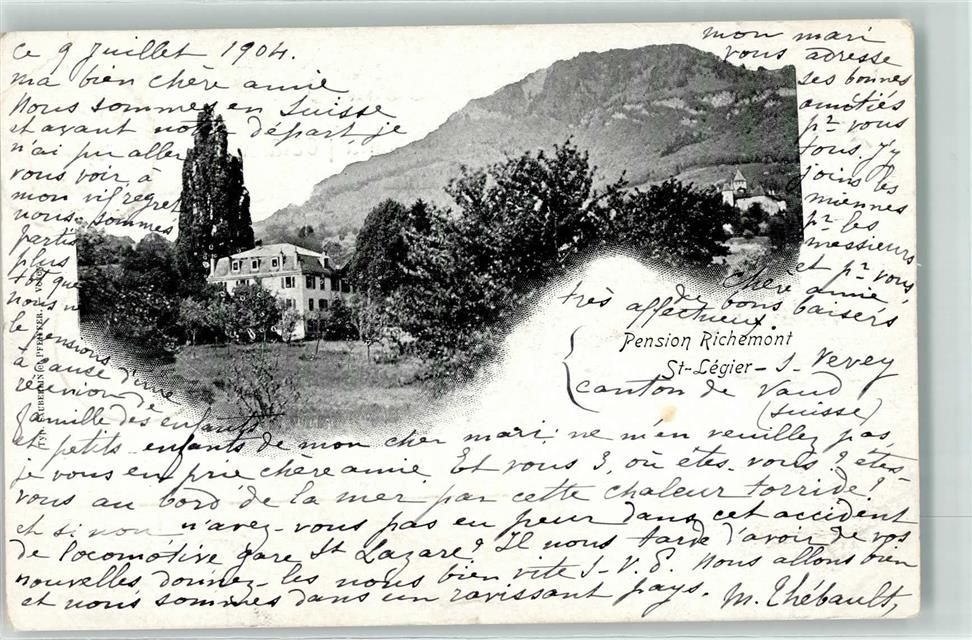 ce 9 Juillet 1904.
ma bien chère amie
Nous sommes en Suisse
et avant notre départ je
n'ai pu aller
vous voir, à
mon vif regret
nous sommes
partis
plus
tôt que
nous n
le pensions
à cause d'une
réunion de
famille des enfants
et petits-enfants de mon cher mari; ne m'en veuillez pas,
je vous en prie chère amie. Et vous 3, où êtes-vous? êtes-
vous au bord de la mer par cette chaleur torride?
et si non n'avez-vous pas eu peur dans cet accident
de locomotive gare St Lazare? Il nous tarde d'avoir de vos
nouvelles donnez-les nous bien vite S.V.P. Nous allons bien
et nous sommes dans un ravissant pays. M. Thébault,
mon mari
vous adresse
ses bonnes
amitiés
pr vous
tous, j'y
joins les
miennes
pr les
messieurs
et pr vous,
chère amie,
de bons baisers
très affectueux
Pension Richemont
St-Légier - s. Vevey
canton de Vaud
(Suisse)